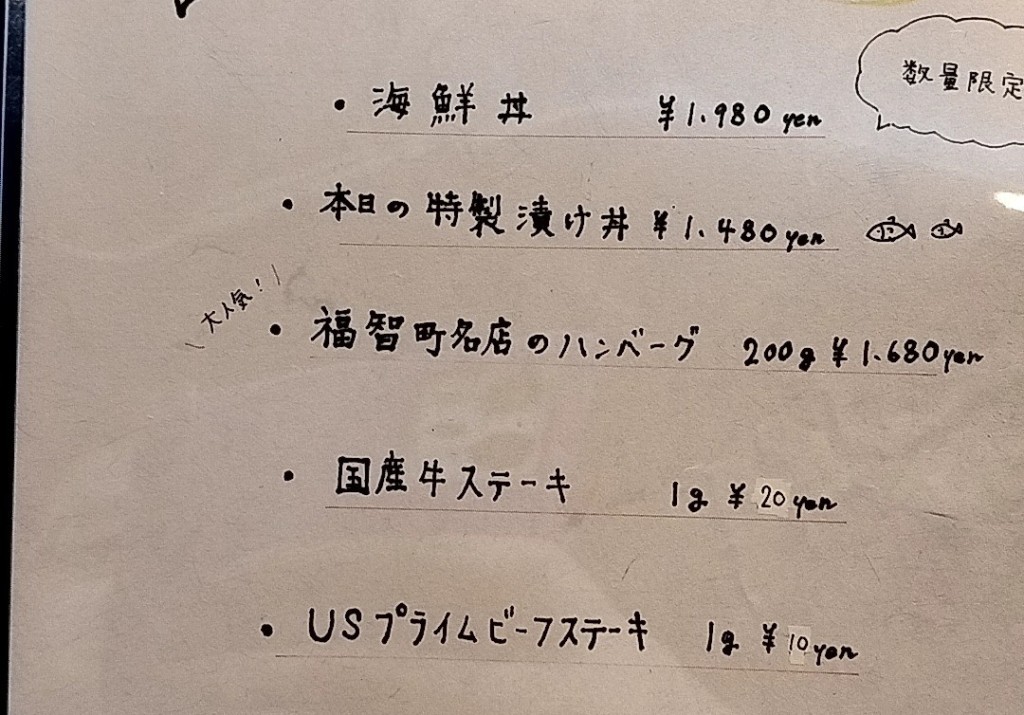 数量限定
・海鮮丼 ¥1.980yen
・本日の特製漬け丼 ¥1.480yen
大人気!
・福智町名店のハンバーグ 200g ¥1.680yen
・国産牛ステーキ 1g ¥20yen
・USプライムビーフステーキ 1g ¥10yen